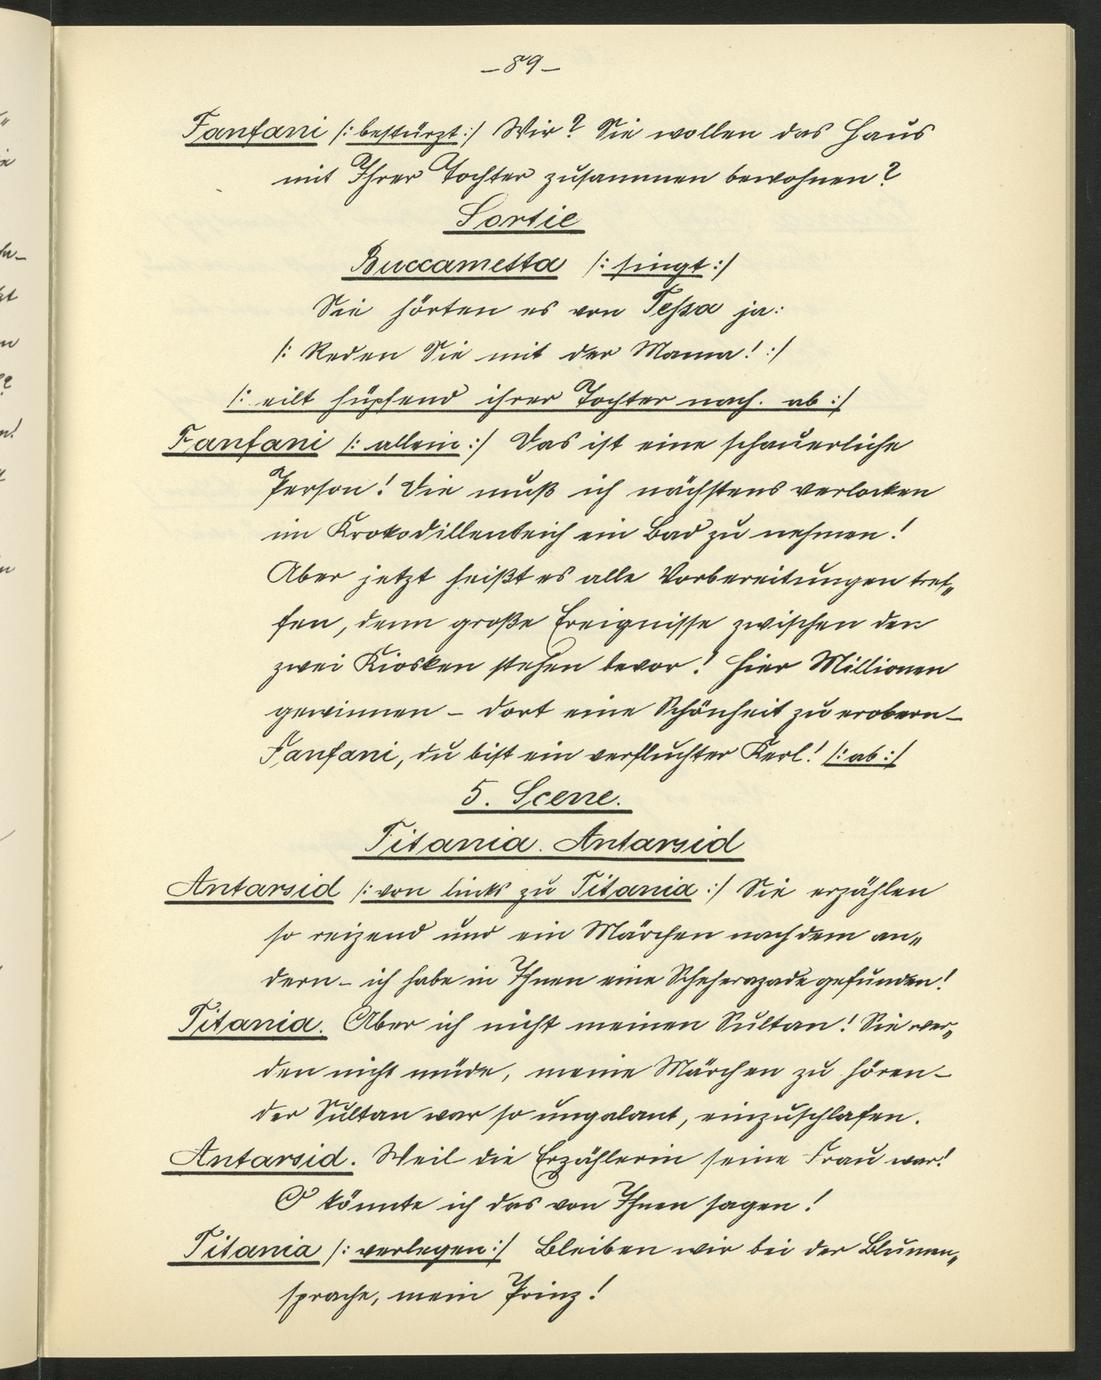 –89–
Fanfani /: bestürzt :/ Wir? Sie wollen das Haus
mit Ihrer Tochter zusammen bewohnen?
Sortie
Buccametta /: singt :/
Sie hörten es von Tessa ja:
/: Reden Sie mit der Mama! :/
/: eilt hüpfend ihrer Tochter nach. ab :/
Fanfani /: allein :/ Das ist eine schauerliche
Person! Die muß ich nächstens verlocken
im Krokodillenteich ein Bad zu nehmen!
Aber jetzt heißt es alle Vorbereitungen tref„
fen, denn große Ereignisse zwischen den
zwei Kiosken stehen bevor! Hier Millionen
gewinnen – dort eine Schönheit zu erobern –
Fanfani, du bist ein verfluchter Kerl! /: ab :/
5. Scene.
Titania. Antarsid
Antarsid /: von links zu Titania :/ Sie erzählen
so reizend und ein Märchen nach dem an„
dern – ich habe in Ihnen eine Scheherazade gefunden!
Titania. Aber ich nicht meinen Sultan! Sie wer„
den nicht müde, meine Märchen zu hören –
der Sultan war so ungalant, einzuschlafen.
Antarsid. Weil die Erzählerin seine Frau war!
O könnte ich das von Ihnen sagen!
Titania /: verlegen :/ Bleiben wir bei der Blumen„
sprache, mein Prinz!